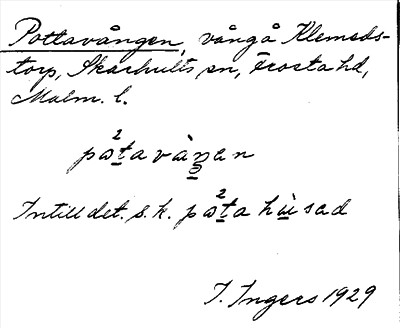 Pottavången, vång å Klemeds-
torp, Skarhults sn, Frosta hd,
Malm. l.
2
pɷtavàŋ̥an
Intill det. s. k. pɷ²ta hùsad
I. Ingers 1929